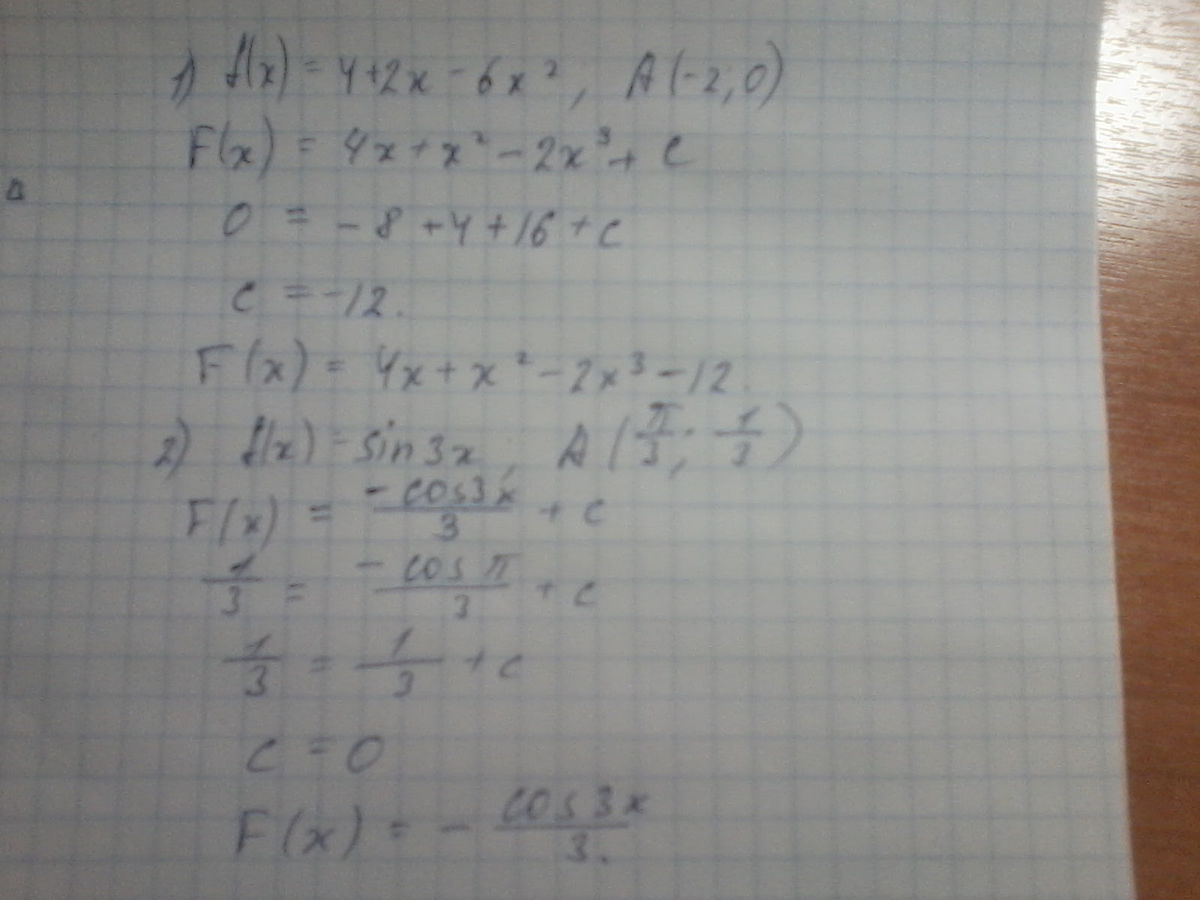 1) f(x) = 4+2x - 6x², A(-2; 0)
F(x) = 4x + x² - 2x³ + c
0 = - 8 + 4 + 16 + c
c = -12.
F(x) = 4x + x² - 2x³ - 12.
2) f(x) = sin3x, A(π/3; 1/3)
F(x) = -cos3x/3 + c
1/3 = -cos π/3 + c
1/3 = 1/3 + c
c = 0
F(x) = - cos3x/3.